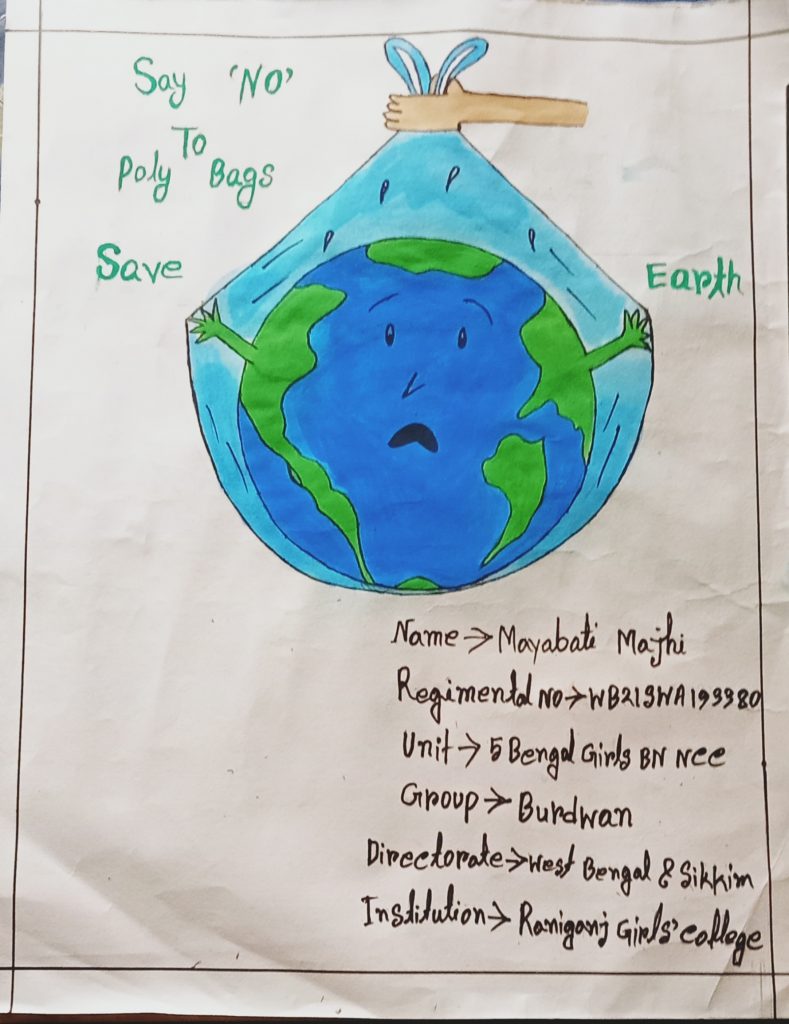 Say 'NO'
To
Poly Bags
Save Earth
Name→Mayabati Majhi
Regimental No→WB21SWA193380
Unit→5 Bengal Girls BN NCC
Group→Burdwan
Directorate→West Bengal & Sikkim
Institution→Raniganj Girls' College